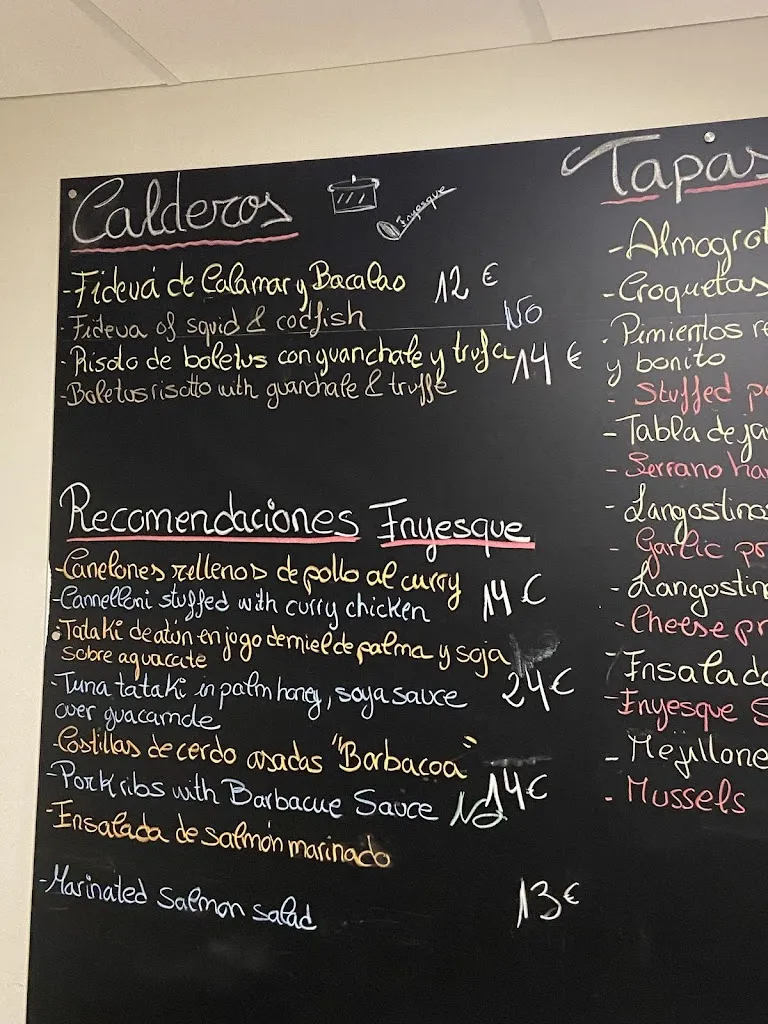 Calderos
Inyesque
- Fideuá de Calamar y Bacalao 12 €
- Fideua of squid & codfish NO
- Risoto de boletus con guanchale y trufa 14 €
- Boletus risotto with guanchale & truffe
Recomendaciones Inyesque
- Canelones rellenos de pollo al curry
- Cannelloni stuffed with curry chicken 14 €
- Tataki de atún en jogo de miel de palma y soja
sobre aguacate
- Tuna tataki in palm honey, soya sauce 24 €
over guacamole
- Costillas de cerdo asadas "Barbacoa"
- Pork ribs with Barbacue Sauce NO 14 €
- Ensalada de salmón marinado
- Marinated Salmon salad 13 €
Tapas
- Almogrot
- Croquetas
- Pimientos re
y bonito
- Stuffed pe
- Tabla de ja
- Serrano ha
- Langostinos
- Garlic pr
- Langostin
- Cheese pr
- Ensalada
- Inyesque S
- Mejillone
- Mussels